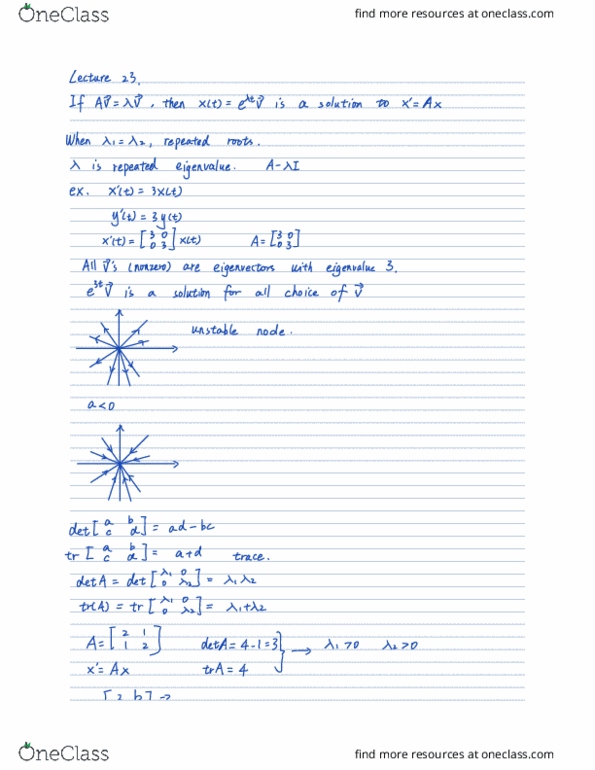 OneClass
find more resources at oneclass.com
Lecture 23.
If Av⃗=λv⃗, then x(t) = e^{λt}v⃗ is a solution to x'=Ax
When λ₁=λ₂, repeated roots.
λ is repeated eigenvalue. A-λI
ex. x'(t) = 3x(t)
y'(t) = 3y(t)
x'(t) = [3 0; 0 3] x(t) A=[3 0; 0 3]
All v⃗'s (nonzero) are eigenvectors with eigenvalue 3.
e^{3t}v⃗ is a solution for all choice of v⃗
unstable node.
a<0
det[a b; c d] = ad-bc
tr[a b; c d] = a+d trace.
detA = det[λ₁ 0; 0 λ₂] = λ₁λ₂
tr(A) = tr[λ₁ 0; 0 λ₂] = λ₁+λ₂
A=[2 1; 1 2] detA=4-1=3 } → λ₁>0 λ₂>0
x'=Ax trA=4
OneClass
find more resources at oneclass.com